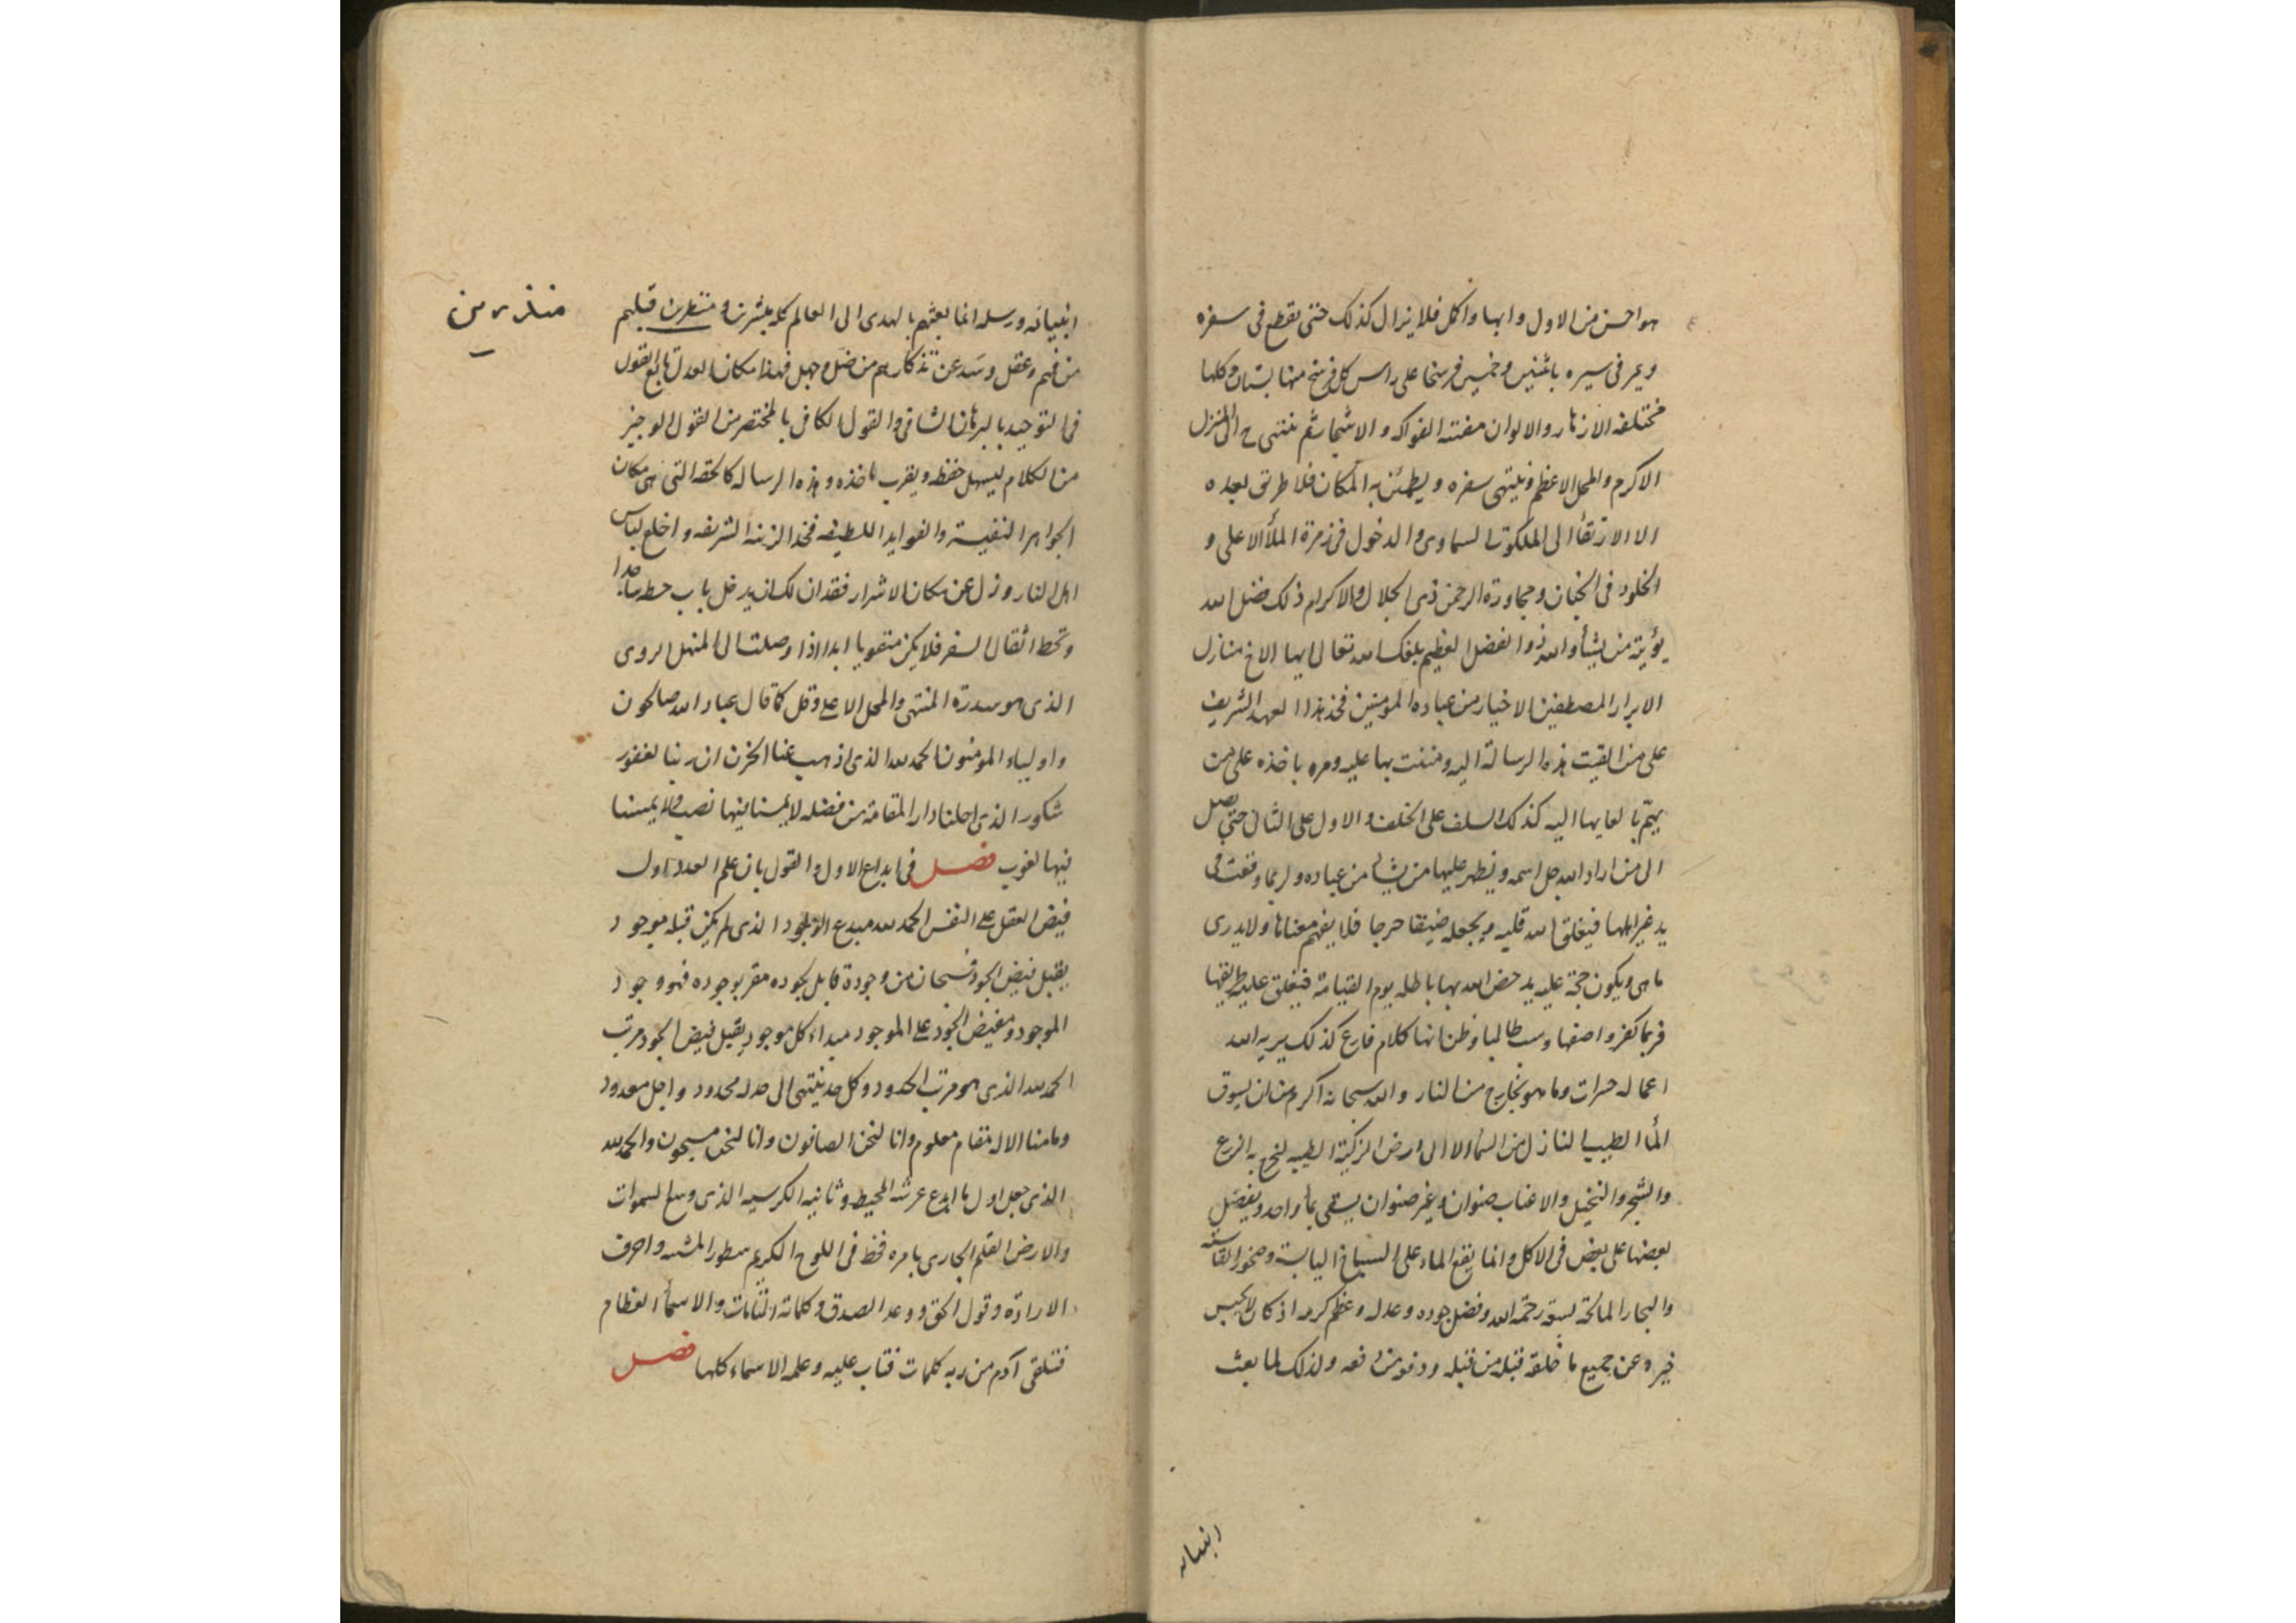 هو احسن من الاول وابها واكل فلا يزال كذلك حتى يقطع فى سفره
ويمر فى سيره باثنين وخمسين فرسخا على راس كل فرسخ منها بستان وكلها
مختلفه الازهار والالوان مفتنه الفواكه والاشجار ثم ينتهى ح الى المنزل
الاكرم والمحل الاعظم فينتهى سفره ويطمئن به المكان فلا طريق بعده
الا الارتقأ الى الملكوت السماوى والدخول فى زمرة الملأ الاعلى و
الخلود فى الجنان ومجاورة الرحمن ذى الجلال والاكرام ذلك فضل الله
يؤتيه من يشأ والله ذو الفضل العظيم بلغك الله تعالى ايها الاخ منازل
الابرار المصطفين الاخيار من عباده المومنين فخذ هذا العهد الشريف
على من القيت هذه الرسالة اليه ومننت بها عليه ومره باخذه على من
يهتم بالقايها اليه كذلك السلف على الخلف والاول على الثانى حتى يصل
الى من اراد الله جل اسمه ويظهر عليها من يشا من عباده ولربما وقعت فى
يد غير اهلها فيغلق الله قلبه ويجعله ضيقا حرجا فلا يفهم معناها ولا يدرى
ما هى ويكون حجة عليه يدحض الله بها باطله يوم القيامة فيغلق عليه طريقها
فربما كفر واصفها وسب طالبها وظن انها كلام فارغ كذلك يريه الله
اعماله حسرات وما هو بخارج من النار والله سبحانه اكرم من ان يسوق
المأ الطيب النازل من السمأ الا الى ارض الزكية الطيبه ليخرج به الزرع
والشجر والنخيل والاعناب صنوان وغير صنوان يسقى بمأ واحد ويفضل
بعضها على بعض فى الاكل وانما يقع الماء على السباخ اليابسة وصخور القاسيه
والبحار المالحة لسعة رحمة الله وفضل جوده وعدله وعظم كرمه اذ كان لا يحبس
خيره عن جميع ما خلقه قبله من قبله ودفعه من دفعه ولذلك لما بعث
انبيائه
انبيائه ورسله انما بعثهم بالهدى الى العالم كله مبشرين و قبلهم
منذرين
من فهم وعقل وسد عن تذكارهم من ضل وجهل فهذا مكان العدل تابع القول
فى التوحيد بالبرهان الشافى والقول الكافى بالمختصر من القول الوجيز
من الكلام ليسهل حفظه ويقرب ماخذه وهذه الرساله كالحقه التى هى مكان
الجواهر النفيسة والفوايد اللطيفه فخذ الزينه الشريفه واخلع لباس
اهل النار وزل عن مكان الاشرار فقد ان لك ان يدخل باب حطه ساجدا
وتحط اثقال السفر فلا يكن متقويا ابدا اذا وصلت الى المنهل الروى
الذى هو سدرة المنتهى والمحل الاعلى وقل كما قال عباد الله صالحون
واولياء المومنون الحمد لله الذى اذهب عنا الحزن ان ربنا لغفور
شكور الذى احلنا دار المقامة من فضله لا يمسنا فيها نصب ولا يمسنا
فيها لغوب فصل فى ابداع الاول والقول بان علم العدد اول
فيض العقل على النفس الحمد لله مبدع الوجود الذى لم يكن قبله موجود
يقبل فيض الجود فسبحان من وجوده قابل لجوده مقر بوجوده فهو وجود
الموجود ومفيض الجود على الموجود مبداء كل موجود يقبل فيض الجود مرتب
الحمد لله الذى هو مرتب الحدود وكل حد ينتهى الى حد له محدود واجل معدود
وما منا الا له مقام معلوم وانا لنحن الصافون وانا لنحن مسبحون والحمد لله
الذى جعل اول ما ابدع عرشه المحيط وثانيه الكرسيه الذى وسع السموات
والارض القلم الجارى بامره فخط فى اللوح الكريم سطور المشيه واحرف
الارادة وقول الحق ووعد الصدق وكلماته التامات والاسمأ العظام
فتلقى آدم من ربه كلمات فتاب عليه وعلمه الاسماء كلها فصل